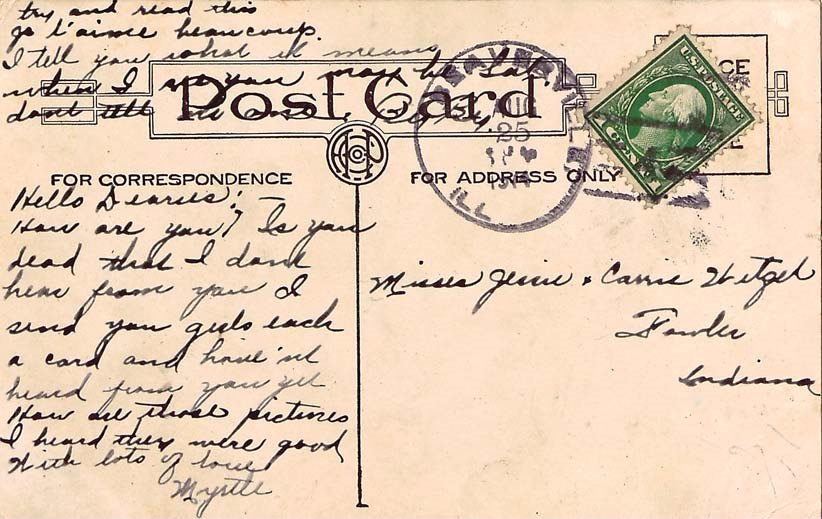 try and read this
go t'aime beaucoup.
I tell you what it means
when I see you may be Sat
dont tell
Post Card
BEAVERVILLE
AUG
25
ILL
U.S. POSTAGE
1 CENT 1
CE
E
FOR CORRESPONDENCE
FOR ADDRESS ONLY
Hello Dearies! –
How are you? Is you
dead that I dont
hear from you I
send you girls each
a card and have'nt
heard from you yet
How are those pictures
I heard they were good
With lots of love
Myrtle
Misses Jessie & Carrie Wetzel
Fowler
Indiana